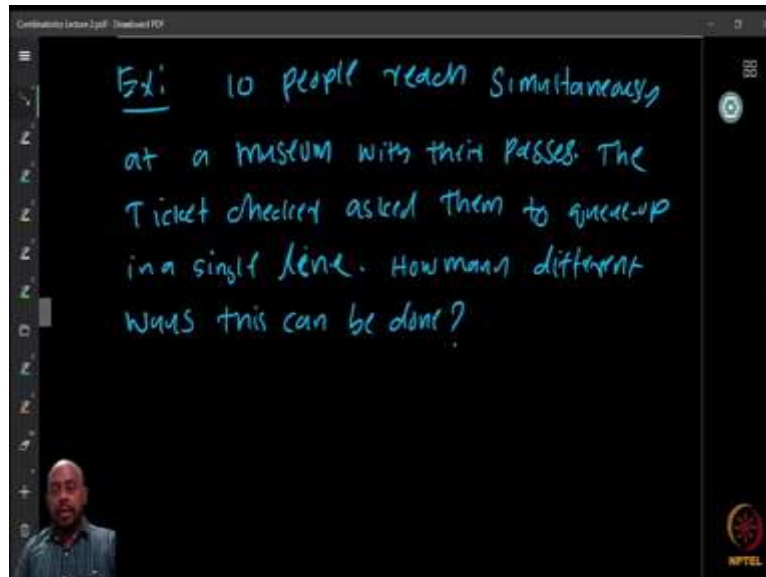 Combinatorics Lecture 2.pdf - Drawboard PDF
Ex: 10 people reach simultaneously
at a museum with their passes. The
Ticket checker asked them to queue-up
in a single line. How many different
ways this can be done?
NPTEL